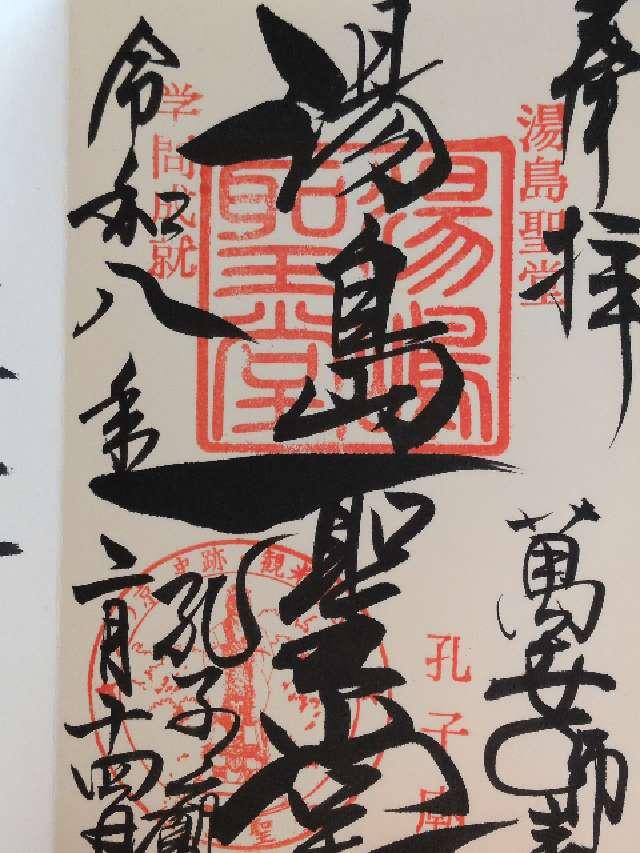 奉拝
萬世師表
湯島聖堂
孔子廟
湯島聖堂
湯島聖堂
学問成就
孔子廟
令和八年
二月十四日
史跡 観
聖